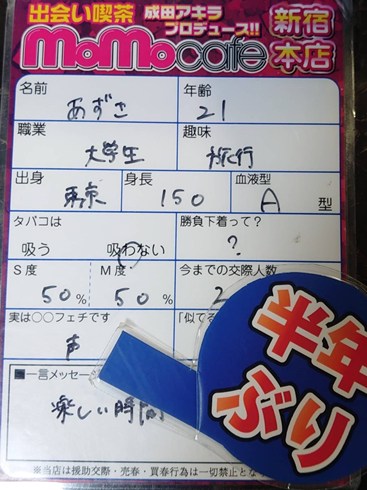 出会い喫茶 成田アキラ プロデュース!! 新宿
MoMocafe 本店
名前 年齢
あずさ 21
職業 趣味
大学生 旅行
出身 身長 血液型
東京 150 A 型
タバコは 勝負下着って?
吸う 吸わない ?
S度 M度 今までの交際人数
50% 50% 2
実は○○フェチです 「似てる
声
■一言メッセージ
楽しい時間
半年
ぶり
※当店は援助交際・売春・買春行為は一切禁止と